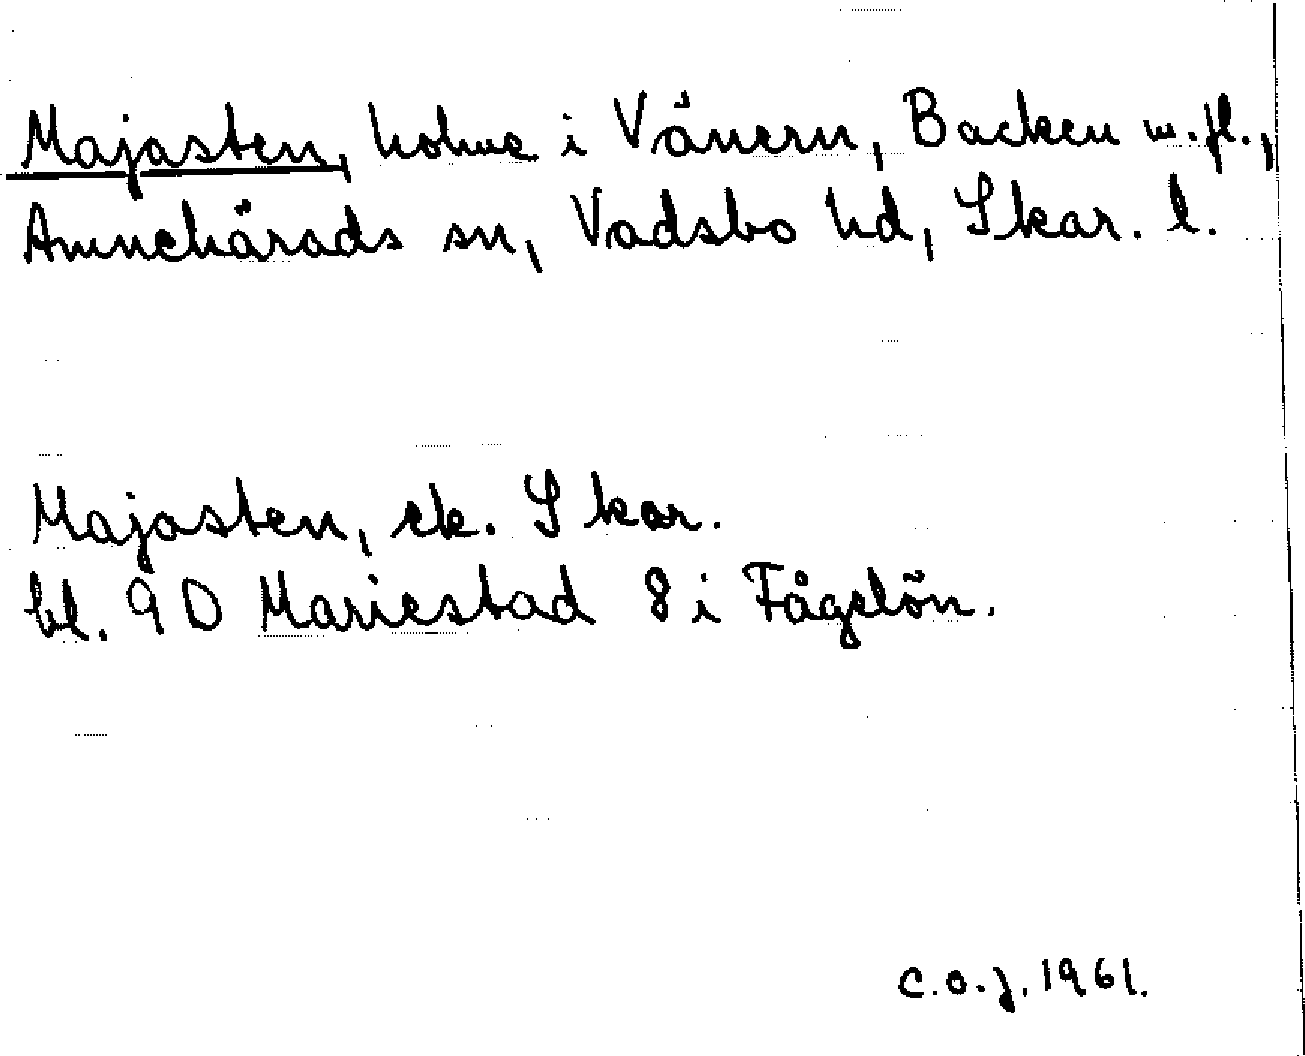 Majasten, holme i Vänern, Backen m.fl.,
Amnehärads sn, Vadsbo hd, Skar. l.
Majasten, ek. Skar.
bl. 9D Mariestad 8i Fågelön.
C.O.J. 1961.